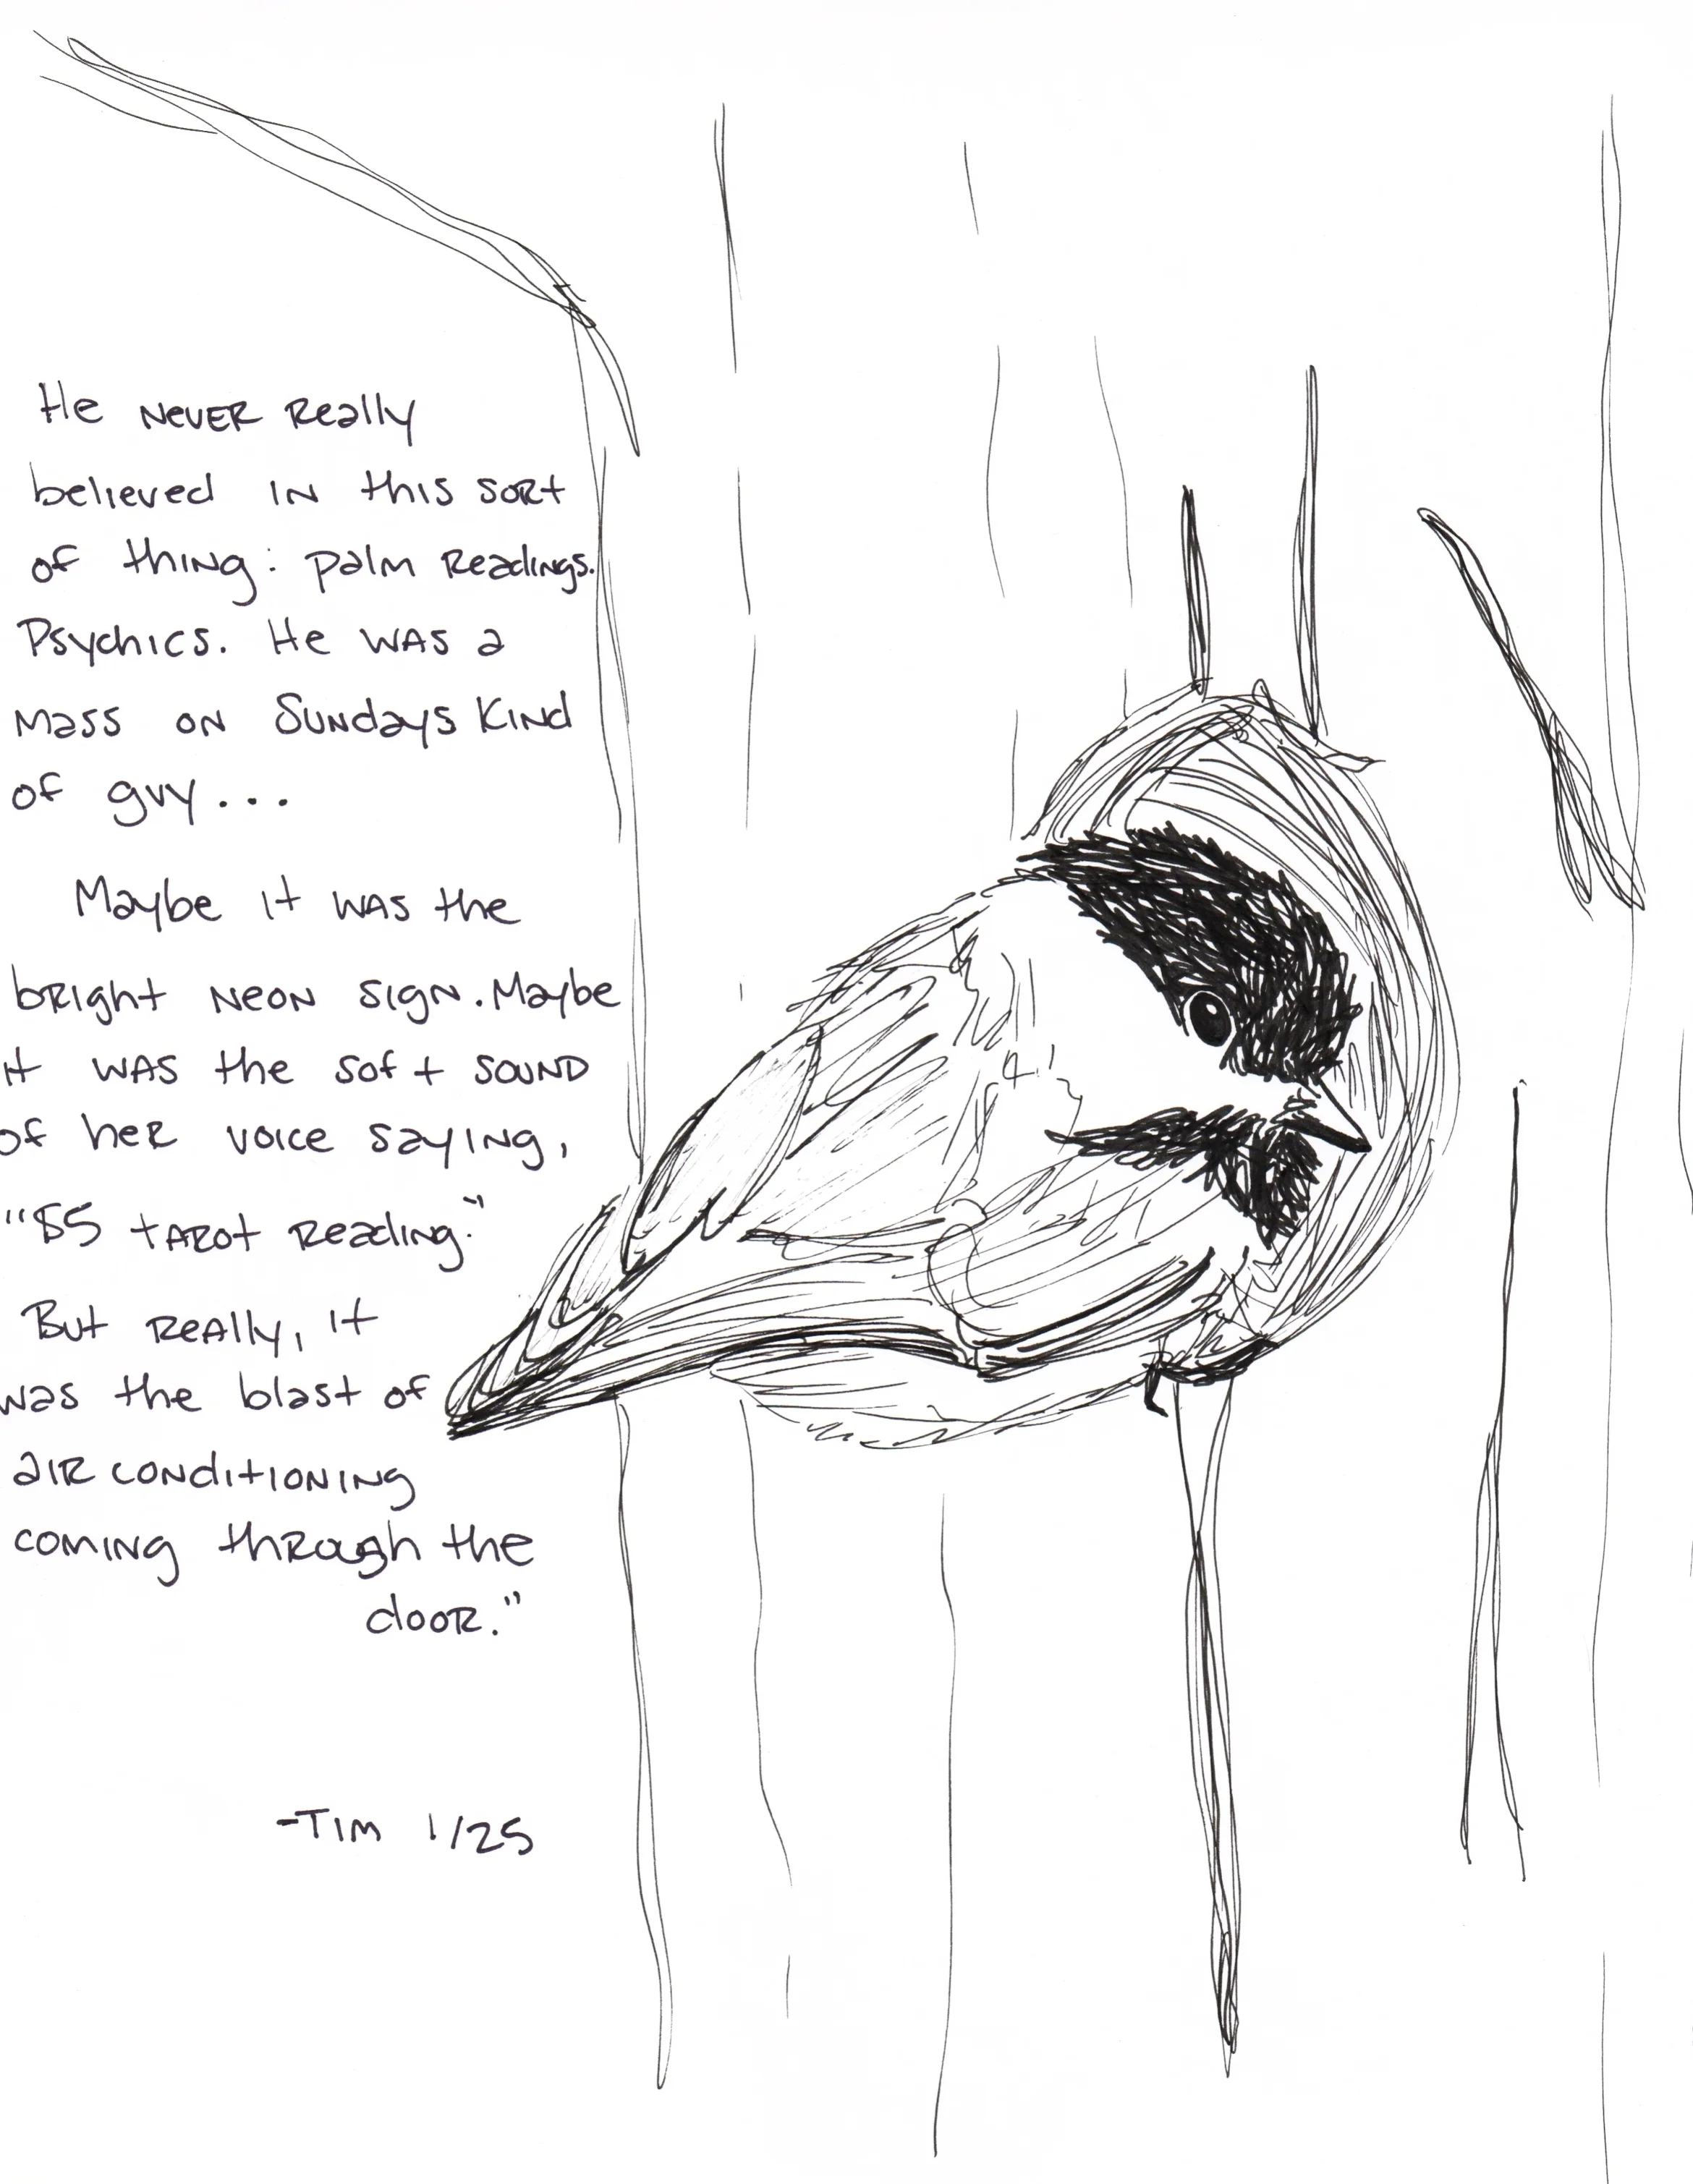 He never really
believed in this sort
of thing: palm readings.
Psychics. He was a
mass on Sundays kind
of guy...
Maybe it was the
bright neon sign. Maybe
it was the soft sound
of her voice saying,
"$5 tarot reading."
But really, it
was the blast of
air conditioning
coming through the
door."
-Tim 1/25